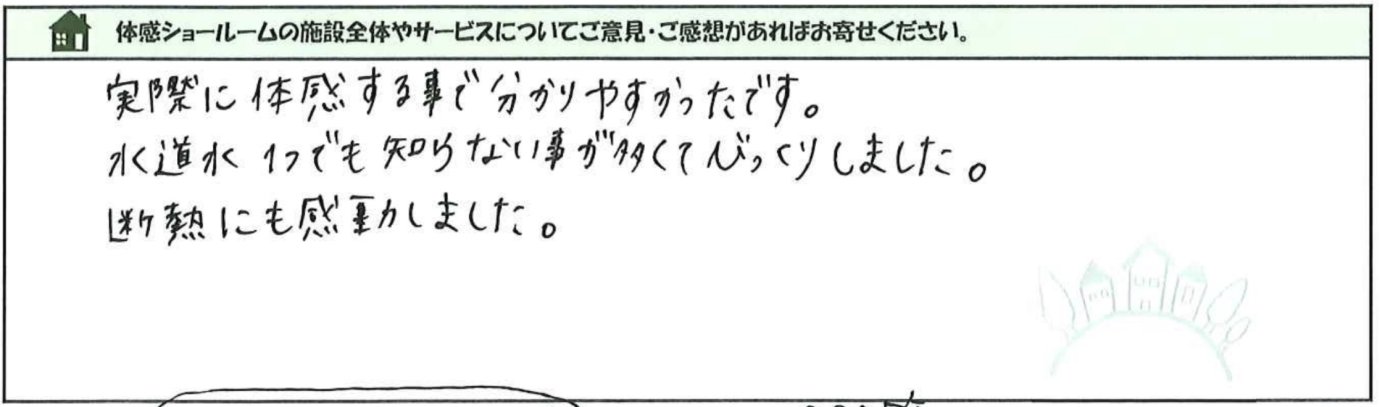 体感ショールームの施設全体やサービスについてご意見・ご感想があればお寄せください。
実際に体感する事で分かりやすかったです。
水道水1つでも知らない事が多くてびっくりしました。
断熱にも感動しました。